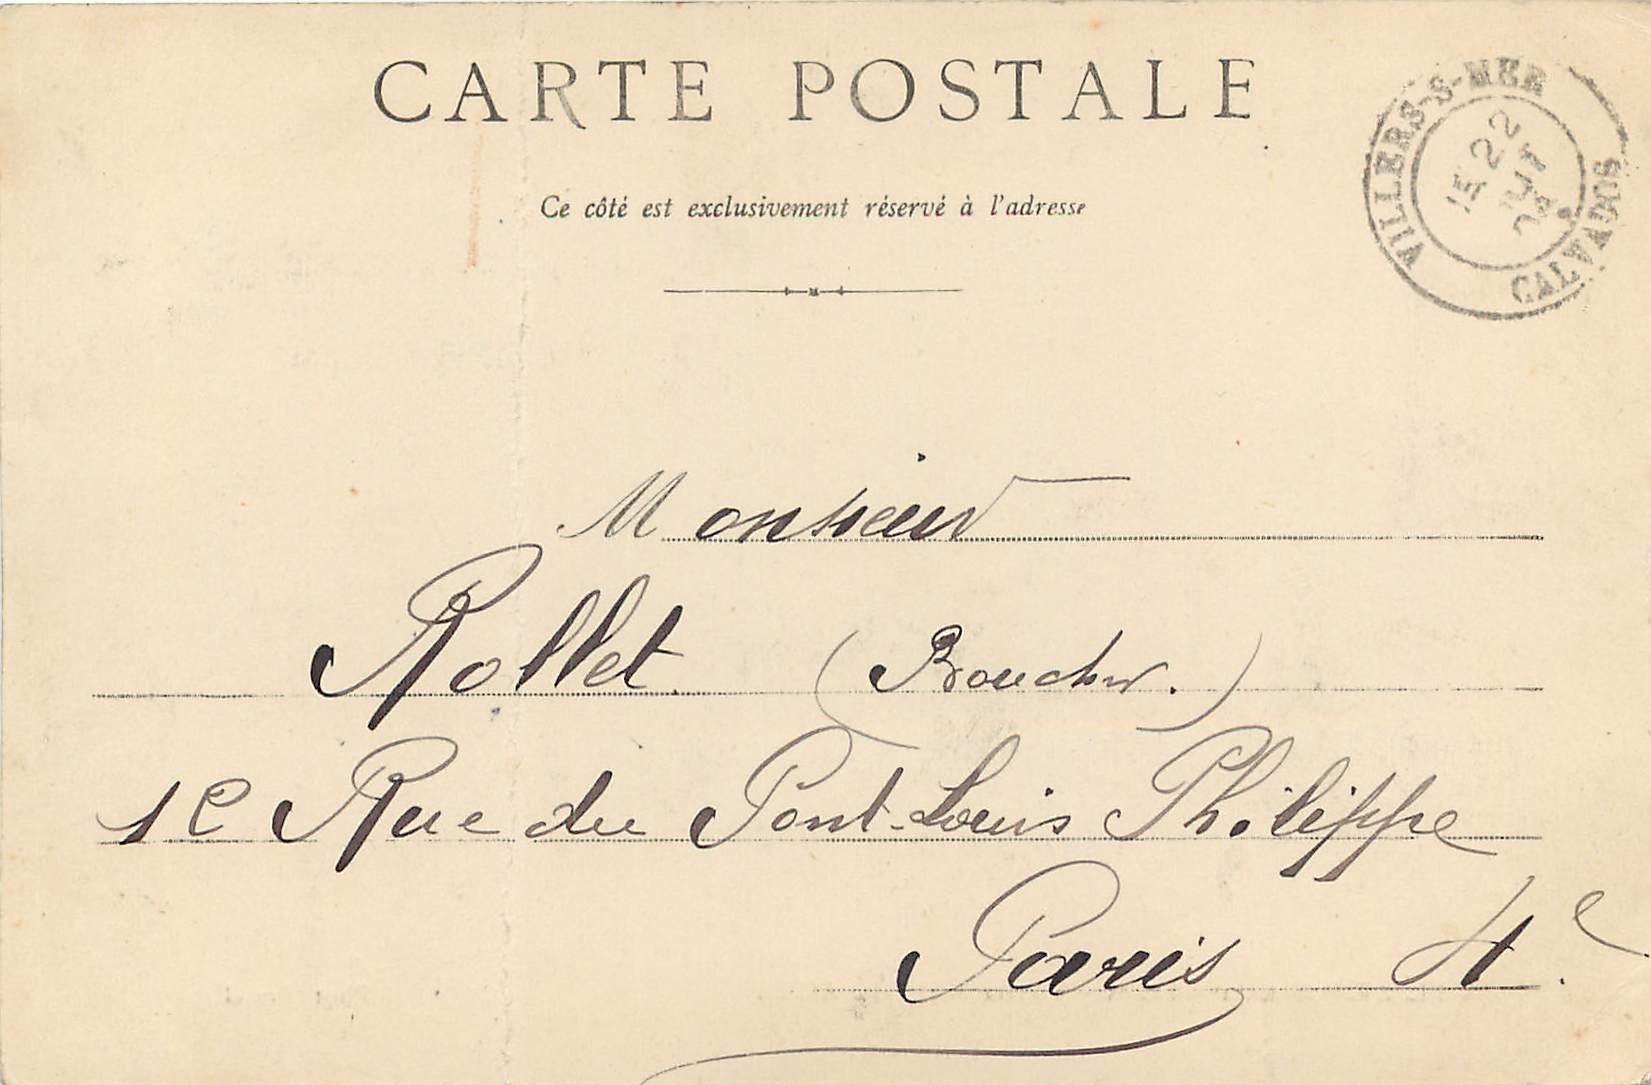 CARTE POSTALE
Ce côté est exclusivement réservé à l'adresse
VILLERS-S-MER
CALVADOS
1E 22
04
Monsieur
Rollet (Boucher.)
Rue du Pont-Louis Philippe
Paris 4e.